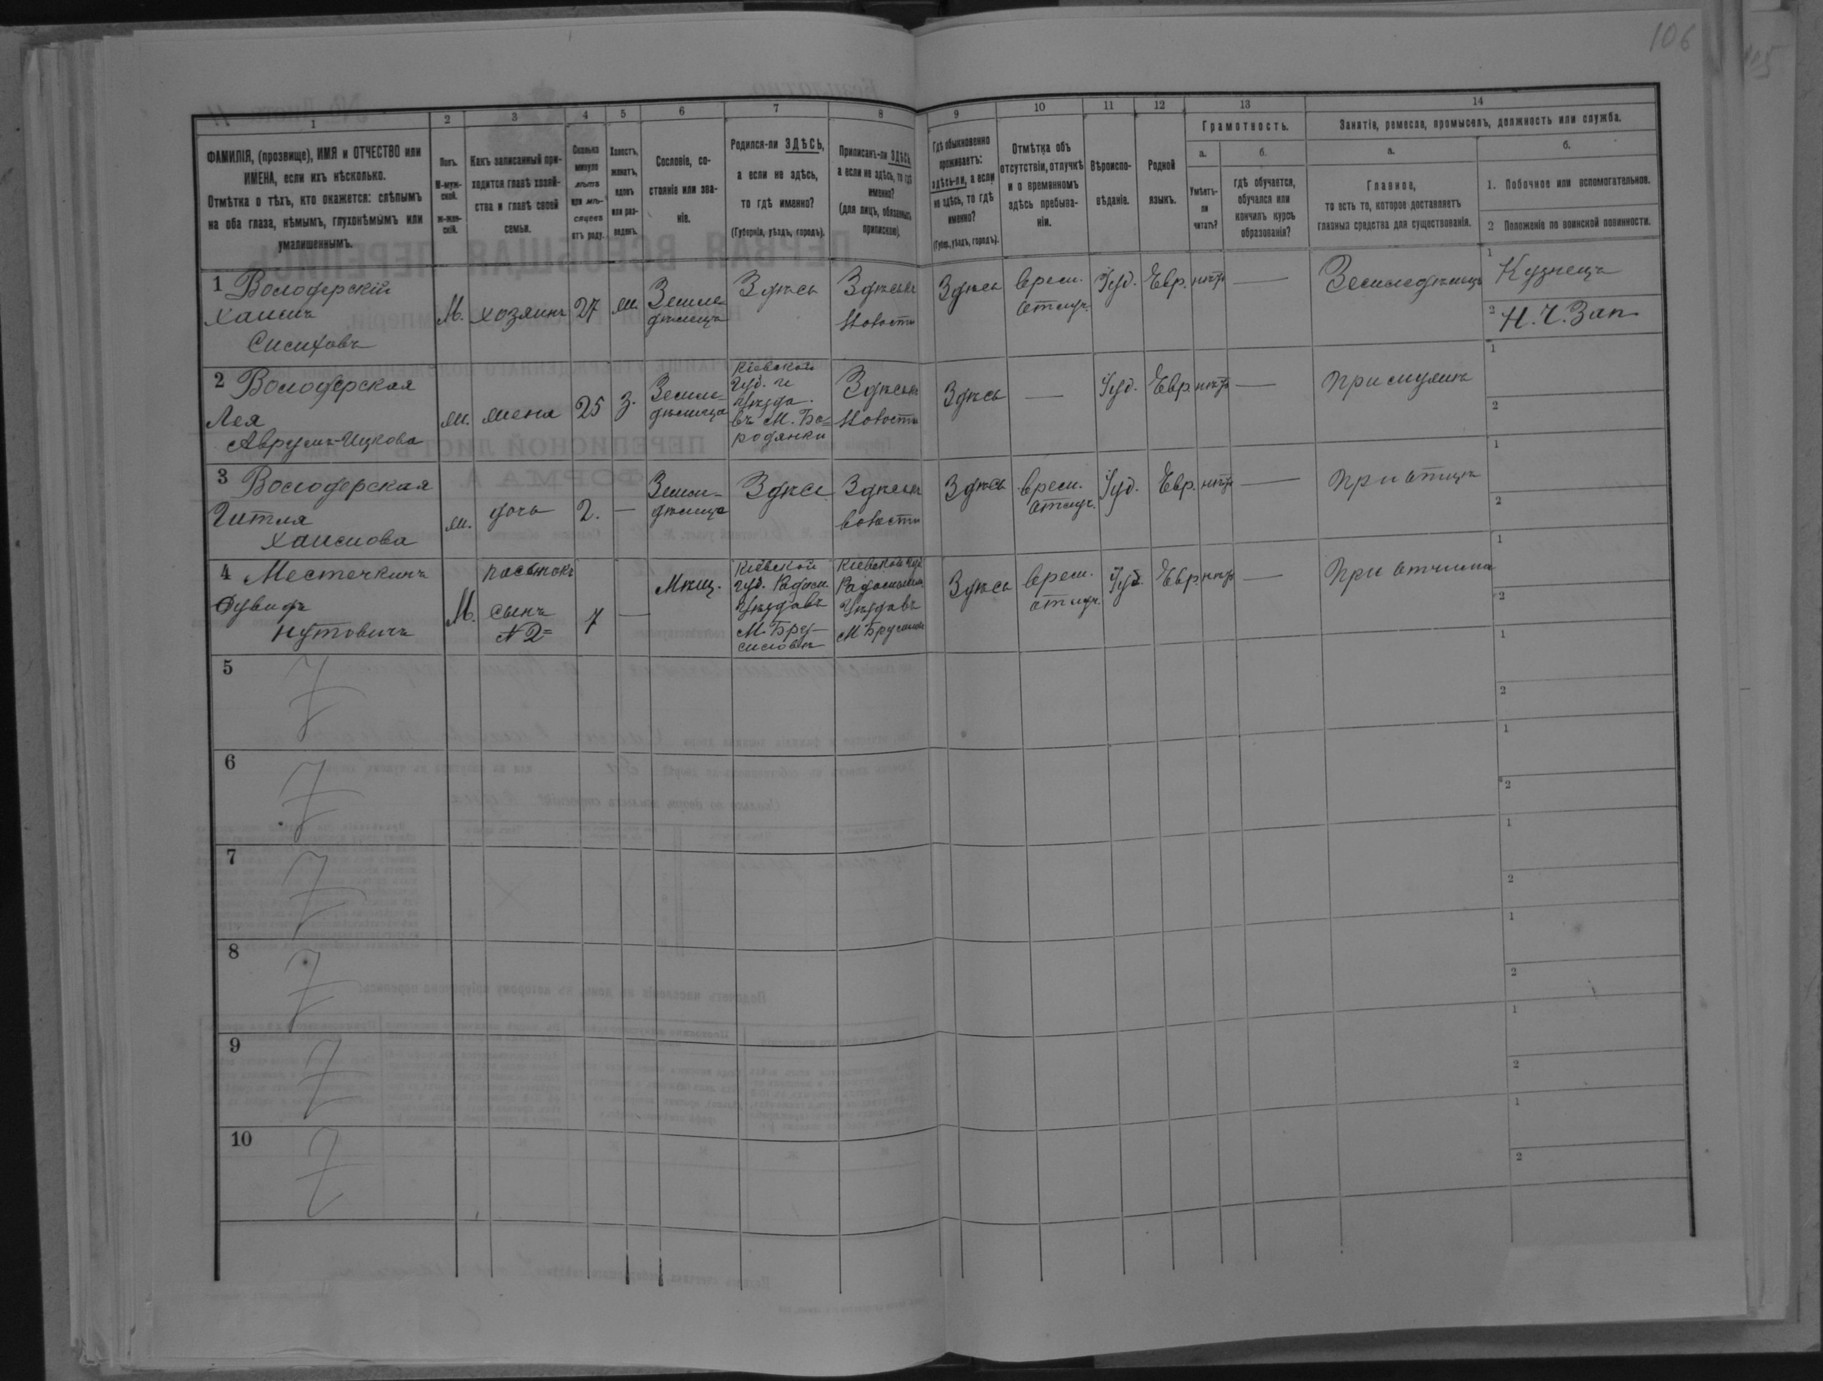 106
1 2 3 4 5 6 7 8 9 10 11 12 13 14
ФАМИЛІЯ, (прозвище), ИМЯ и ОТЧЕСТВО или
ИМЕНА, если ихъ нѣсколько.
Отмѣтка о тѣхъ, кто окажется: слѣпымъ
на оба глаза, нѣмымъ, глухонѣмымъ или
умалишеннымъ.
Полъ.
М-муж-
ской.
ж-жен-
скій.
Какъ записанный при-
ходится главѣ хозяй-
ства и главѣ своей
семьи.
Сколько
минуло
лѣтъ
или мѣ-
сяцевъ
отъ роду.
Холостъ,
женатъ,
вдовъ
или раз-
веденъ.
Сословіе, со-
стояніе или зва-
ніе.
Родился-ли ЗДѢСЬ,
а если не здѣсь,
то гдѣ именно?
(Губернія, уѣздъ, городъ).
Приписанъ-ли ЗДѢСЬ,
а если не здѣсь, то гдѣ
именно?
(для лицъ, обязанныхъ
припискою).
Гдѣ обыкновенно
проживаетъ:
здѣсь-ли, а если
не здѣсь, то гдѣ
именно?
(Губер., уѣздъ, городъ).
Отмѣтка объ
отсутствіи, отлучкѣ
и о временномъ
здѣсь пребыва-
ніи.
Вѣроиспо-
вѣданіе.
Родной
языкъ.
Грамотность.
а.
Умѣетъ-
ли
читать?
б.
гдѣ обучается,
обучался или
кончилъ курсъ
образованія?
Занятія, ремесла, промыселъ, должность или служба.
а.
Главное,
то есть то, которое доставляетъ
главныя средства для существованія.
б.
1. Побочное или вспомогательное.
2 Положеніе по воинской повинности.
1 Володерскій
Хаимъ
М. хозяинъ 27 ж. Земле-
дѣлецъ
Здѣсь
Здѣсь
Врем.
отлуч.
Іуд. Евр. нѣтъ —
Земледѣлецъ
1 Кузнецъ
2 Н. Ч. Зап.
2 Володерская
Лея
Аврумъ-Ицкова
ж. жена 25 з. Земле-
дѣлецъ
Кіевской
Губ. и
Уѣзда
въ М. Бо-
родянки
Здѣсь — Іуд. Евр. нѣтъ —
При мужѣ
1
2
3 Володерская
Гитля
Хаимова
ж. дочь 2. — Земле-
дѣлецъ
Здѣсь
Здѣсь
Врем.
отлуч.
Іуд. Евр. нѣтъ —
При отцѣ
1
2
4 Местечкинъ
Дувидъ
Нутовичъ
М. пасынокъ
сынъ
№2
7 — Мѣщ.
Кіевской
Губ. Радом.
Уѣзда въ
М. Бру-
силовѣ
Кіевской губ.
Уѣзда въ
М. Брусиловѣ
Здѣсь
Врем.
отлуч.
Іуд. Евр. нѣтъ —
При отчимѣ
1
2
5
1
2
6
1
2
7
1
2
8
1
2
9
1
2
10
1
2